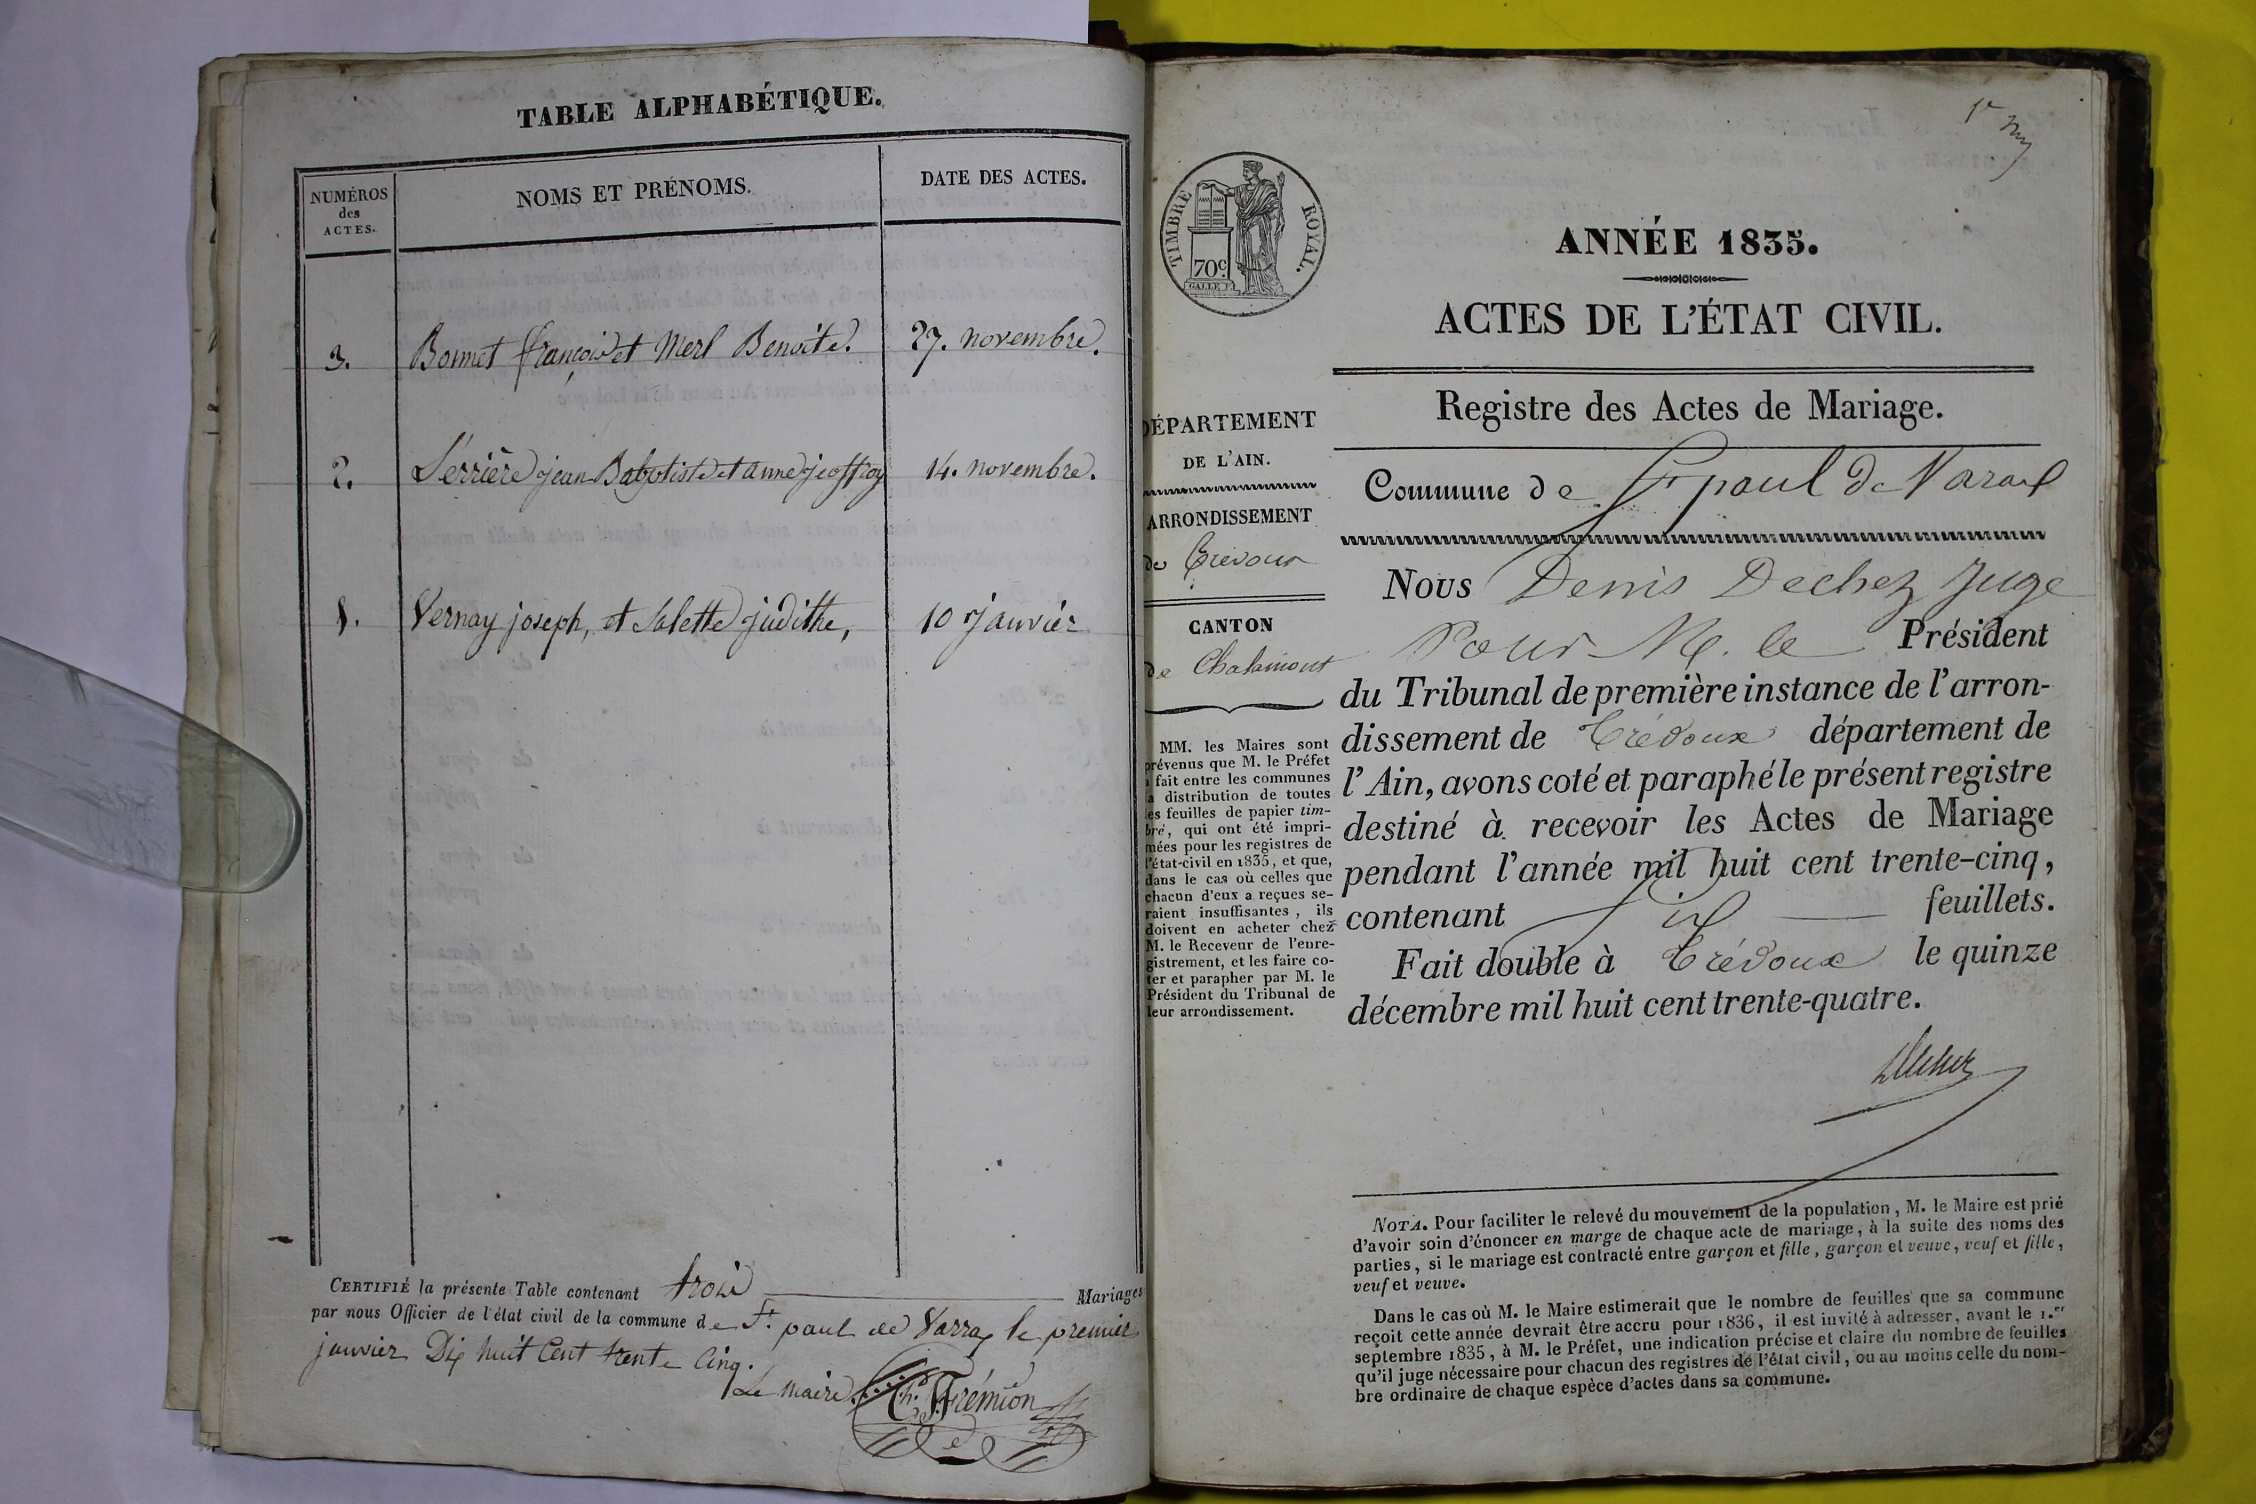 TABLE ALPHABÉTIQUE.
NUMÉROS
des
ACTES.
NOMS ET PRÉNOMS.
DATE DES ACTES.
3. Bonnet françois et Merl Benoite. 27. novembre.
2. jean Babptiste et anne jeoffroy 14. novembre.
1. Vernay joseph, et Salette judithe, 10 janvier
CERTIFIÉ la présente Table contenant trois Mariages
par nous Officier de l'état civil de la commune de St. paul de Varrax le premier
janvier Dix huit Cent trente Cinq.
Le maire. Frémion
1er
TIMBRE ROYAL.
70c.
ANNÉE 1835.
ACTES DE L'ÉTAT CIVIL.
Registre des Actes de Mariage.
Commune de St paul de Varax
DÉPARTEMENT
DE L'AIN.
ARRONDISSEMENT
de Trevoux
CANTON
de Chalamont
MM. les Maires sont
prévenus que M. le Préfet
a fait entre les communes
la distribution de toutes
les feuilles de papier tim-
bré, qui ont été impri-
mées pour les registres de
l'état-civil en 1835, et que,
dans le cas où celles que
chacun d'eux a reçues se-
raient insuffisantes, ils
doivent en acheter chez
M. le Receveur de l'enre-
gistrement, et les faire co-
ter et parapher par M. le
Président du Tribunal de
leur arrondissement.
Nous Denis Dechez Juge
Pour M. le Président
du Tribunal de première instance de l'arron-
dissement de Trévoux département de
l'Ain, avons coté et paraphé le présent registre
destiné à recevoir les Actes de Mariage
pendant l'année mil huit cent trente-cinq,
contenant six feuillets.
Fait double à Trévoux le quinze
décembre mil huit cent trente-quatre.
Dechez
NOTA. Pour faciliter le relevé du mouvement de la population, M. le Maire est prié
d'avoir soin d'énoncer en marge de chaque acte de mariage, à la suite des noms des
parties, si le mariage est contracté entre garçon et fille, garçon et veuve, veuf et fille,
veuf et veuve.
Dans le cas où M. le Maire estimerait que le nombre de feuilles que sa commune
reçoit cette année devrait être accru pour 1836, il est invité à adresser, avant le 1.er
septembre 1835, à M. le Préfet, une indication précise et claire du nombre de feuilles
qu'il juge nécessaire pour chacun des registres de l'état civil, ou au moins celle du nom-
bre ordinaire de chaque espèce d'actes dans sa commune.